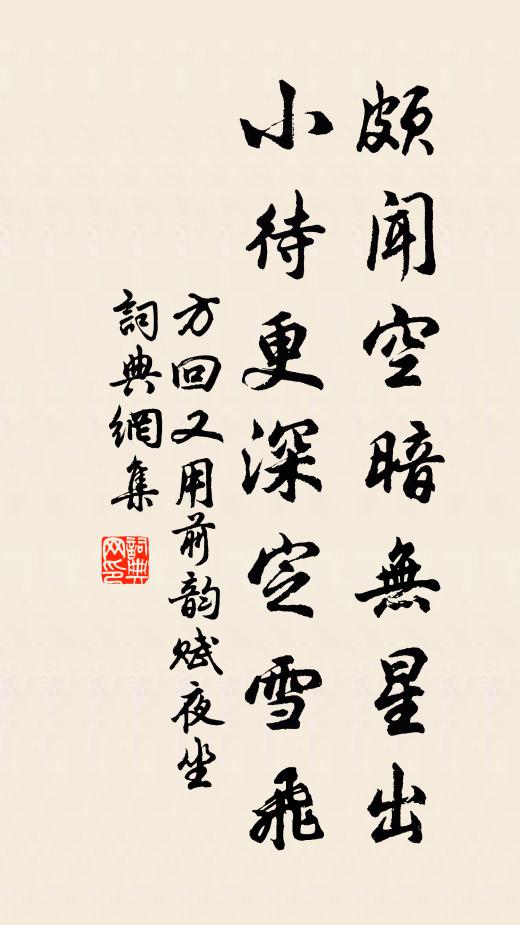 頗聞空暗無星出
小待更深定雪飛
方回又用前韵賦夜坐
詞典網集
詞典網印